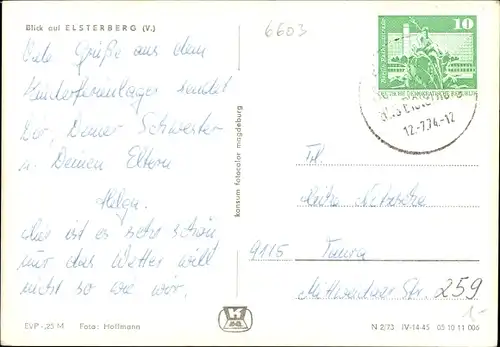 Blick auf ELSTERBERG (V.)
6603
Gute Grüße aus dem
Kinderferienlager sendet
Dir, Deiner Schwester
u. Deinen Eltern
Helga.
Hier ist es sehr schön
nur das Wetter will
nicht so wie wir.
EVP -,25 M Foto: Hoffmann
konsum fotocolor magdeburg
10
DEUTSCHE DEMOKRATISCHE REPUBLIK
12.-7.74.-12
Frl.
9115 Taura
Mittweidaer Str. 259
N 2/73 IV-14-45 05 10 11 006